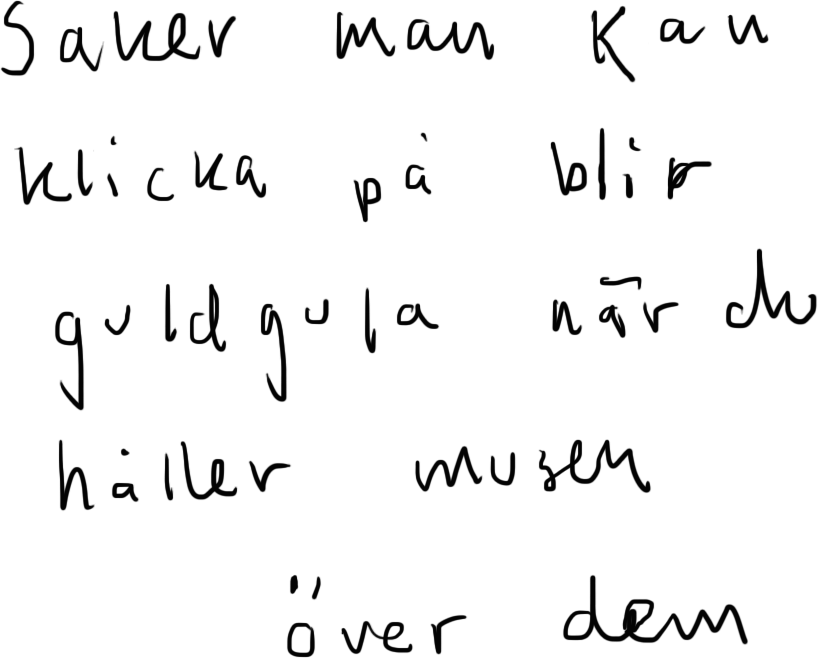 Saker man kan
klicka på blir
guldgula när du
håller musen
över dem